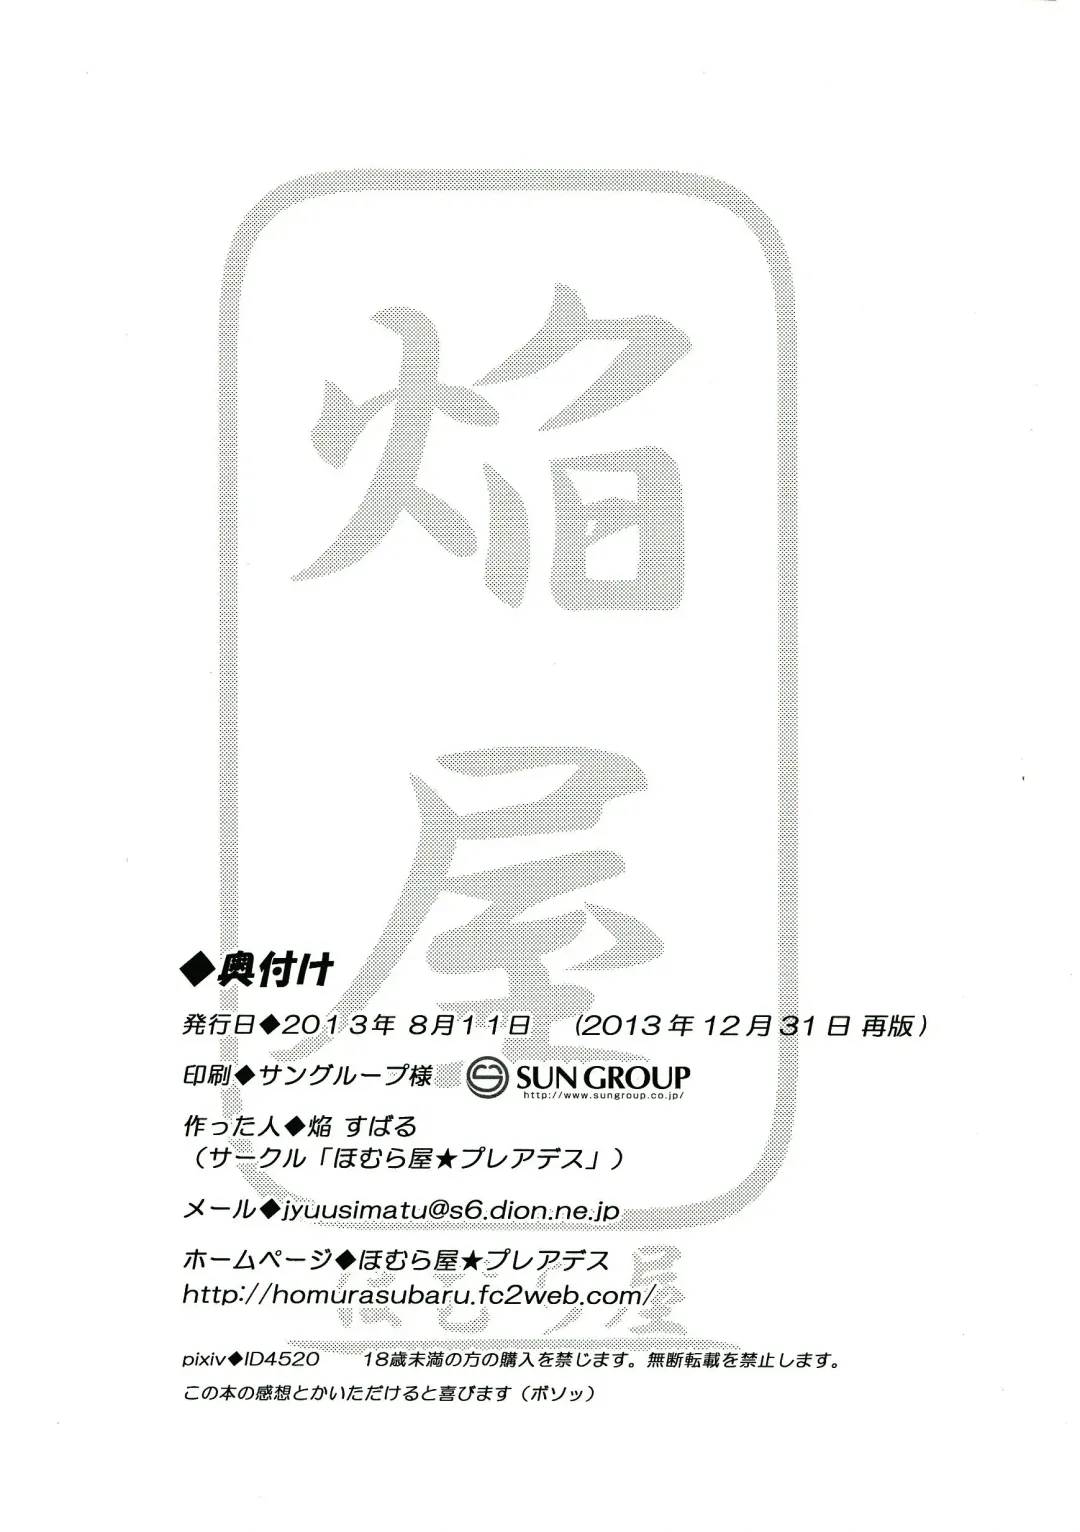 焔
屋
◆奥付け
発行日◆2013年 8月11日　(2013年12月31日 再版)
印刷◆サングループ様　SUN GROUP
http://www.sungroup.co.jp/
作った人◆焔 すばる
(サークル「ほむら屋★プレアデス」)
メール◆jyuusimatu@s6.dion.ne.jp
ホームページ◆ほむら屋★プレアデス
http://homurasubaru.fc2web.com/
ほむら屋
pixiv◆ID4520　18歳未満の方の購入を禁じます。無断転載を禁止します。
この本の感想とかいただけると喜びます(ボソッ)